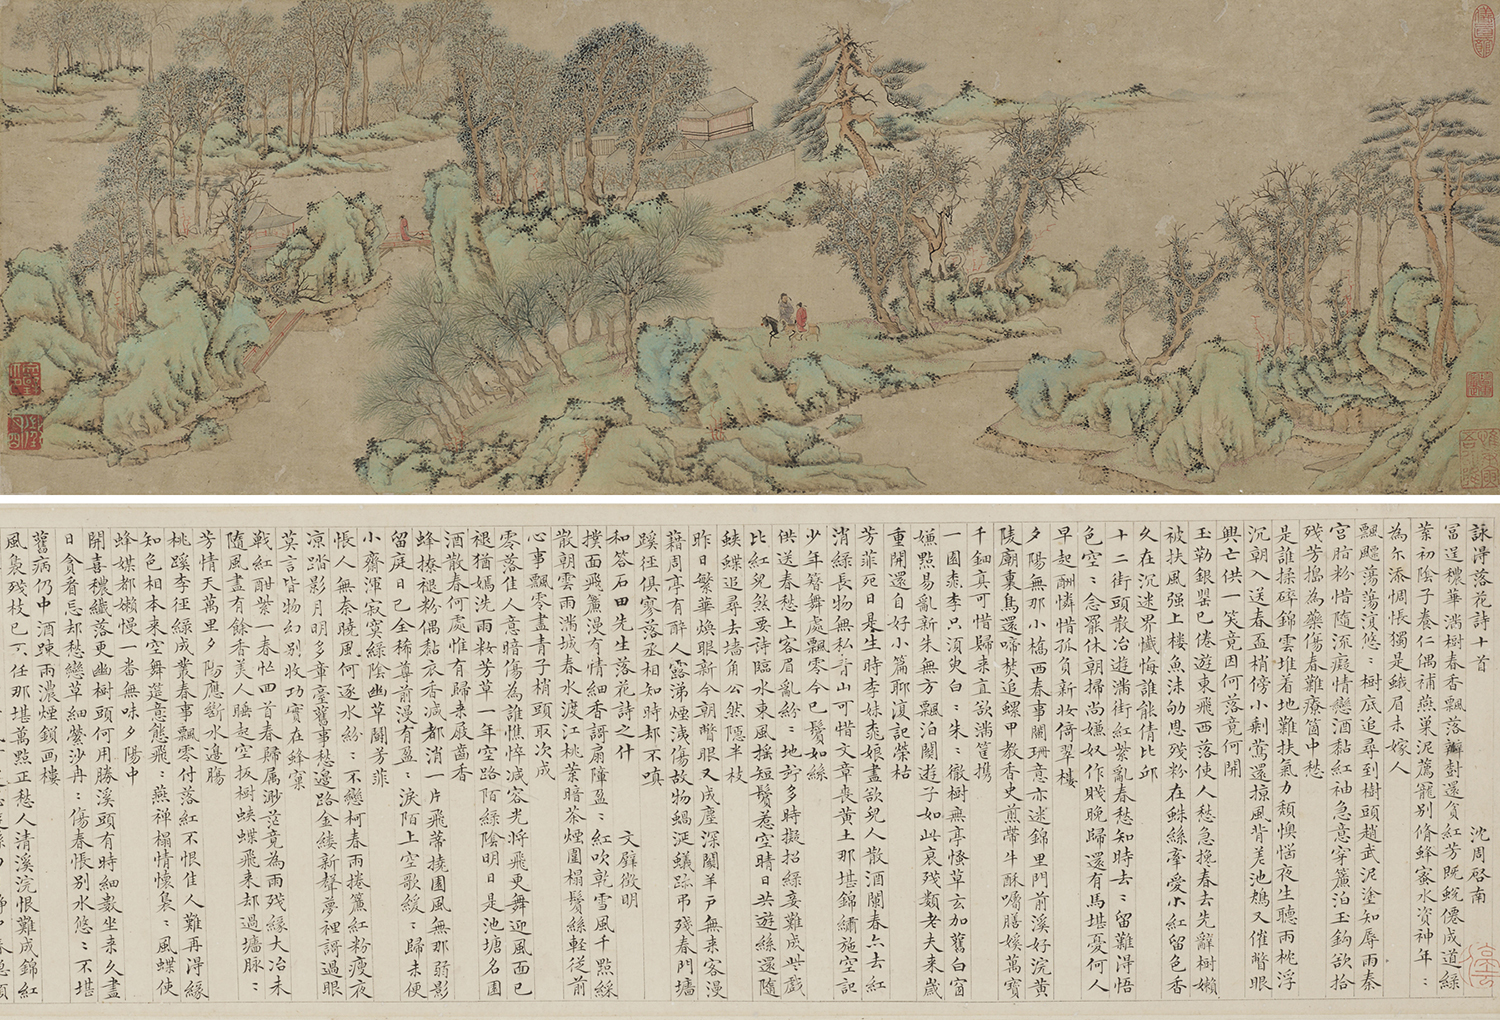 詠得落花詩十首 沈周啓南
富逞穠華滿樹春香飄落瓣樹還貧紅芳既蛻僊成道綠
葉初陰子養仁偶補燕巢泥薦寵別脩蜂蜜水資神年〻
為尔添惆悵獨是蛾眉未嫁人
飄飄蕩蕩漠悠〻樹底追尋到樹頭趙武泥塗知辱雨秦
宮脂粉惜隨流癡情戀酒黏紅袖急意穿簾泊玉鈎欲拾
殘芳搗為藥傷春難療箇中愁
是誰揉碎錦雲堆着地難扶氣力頹懊惱夜生聽雨枕浮
沉朝入送春盃梢傍小剩鶯還掠風背差池鴂又催瞥眼
興亡供一笑竟因何落竟何開
玉勒銀罌已倦遊東飛西落使人愁急攙春去先辭樹嬾
被扶風強上樓魚沫劬恩殘粉在蛛絲牽愛小紅留色香
久在沉迷界懺悔誰能倩比邱
十二街頭散冶遊滿街紅紫亂春愁知時去〻留難得悟
色空〻念罷休朝掃尚嫌奴作賤晚歸還有馬堪憂何人
早起酬憐惜孤負新妝倚翠樓
夕陽無那小橋西春事闌珊意亦迷錦里門前溪好浣黃
陵廟裏鳥還啼焚追螺甲教香史煎帶牛酥囑膳媛萬寶
千鈿真可惜歸來直欲滿筐携
一園桃李只須臾白〻朱〻徹樹無亭慅草玄加舊白窗
嫌點易亂新朱無方飄泊關遊子如此衰殘類老夫來歲
重開還自好小篇聊復記榮枯
芳菲死日是生時李妹桃娘盡欲兒人散酒闌春亦去紅
消綠長物無私青山可惜文章喪黃土那堪錦繡施空記
少年簪舞處飄零今已鬢如絲
供送春愁上客眉亂紛〻地竚多時擬招綠妾難成些戲
比紅兒煞要詩臨水東風撼短鬢惹空晴日共遊絲還隨
蛺蝶追尋去墻角公然隱半枝
昨日繁華煥眼新今朝瞥眼又成塵深關羊戶無來客漫
藉周亭有醉人露涕煙洟傷故物蝸涎蟻跡弔殘春門墻
蹊徑俱寥落丞相知時却不嗔
和答石田先生落花詩之什 文璧徵明
撲面飛簾漫有情細香歌扇障盈〻紅吹乾雪風千點綵
散朝雲雨滿城春水渡江桃葉暗茶煙圍榻鬢絲輕從前
心事飄零盡青子梢頭取次成
零落佳人意暗傷為誰憔悴減容光將飛更舞迎風面已
褪猶嫣洗雨妝芳草一年空路陌綠陰明日是池塘名園
酒散春何處惟有歸來屐齒香
蜂撩褪粉偶黏衣香減都消一片飛蒂撓園風無那弱影
留庭日已全稀尊前漫有盈〻淚陌上空歌緩〻歸未便
小齋渾寂寞綠陰幽草闘芳菲
悵人無奈曉風何逐水紛〻不戀柯春雨捲簾紅粉瘦夜
凉踏影月明多章臺舊事愁邊路金縷新聲夢裡歌過眼
莫言皆物幻別收功實在蜂窠
戰紅酣紫一春忙回首春歸属渺茫竟為雨殘緣大冶未
隨風盡有餘香美人睡起空扳樹蛺蝶飛來却過墻脉〻
芳情天萬里夕陽應斷水邊腸
桃蹊李徑綠成叢春事飄零付落紅不恨佳人難再得緣
知色相本來空舞筵意態飛〻燕禪榻情懷裊〻風蝶使
蜂媒都嬾慢一番無味夕陽中
開喜穠纖落更幽樹頭何用勝溪頭有時細數坐來久盡
日貪看忘却愁戀草細縈沙冉〻傷春悵別水悠〻不堪
舊病仍中酒踈雨濃煙鎖畫樓
風裊殘枝已不任那堪萬點正愁人清溪浣恨難成錦紅